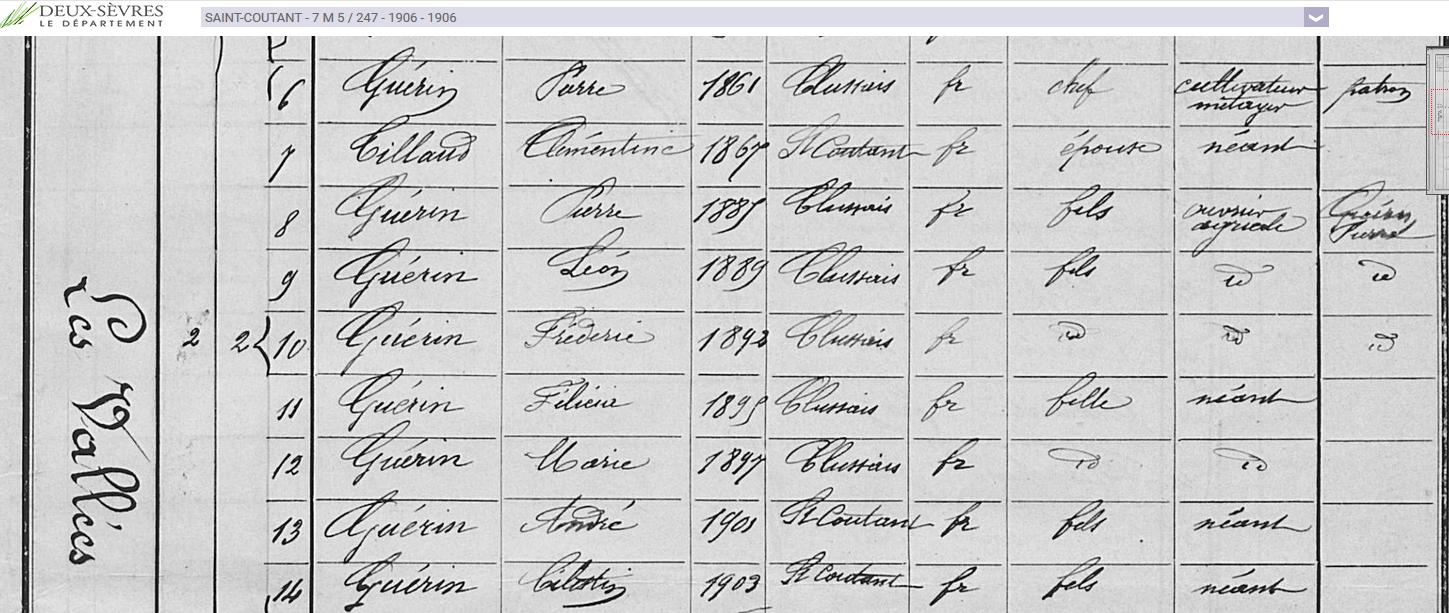 DEUX-SÈVRES
LE DÉPARTEMENT
SAINT-COUTANT - 7 M 5 / 247 - 1906 - 1906
Les Vallées
2 2
6 Guérin Pierre 1861 Clussais fr chef cultivateur métayer patron
7 Tillaud Clémentine 1867 St Coutant fr épouse néant
8 Guérin Pierre 1885 Clussais fr fils ouvrier agricole Guérin Pierre
9 Guérin Léon 1889 Clussais fr fils id id
10 Guérin Fréderic 1893 Clussais fr id id id
11 Guérin Félicia 1895 Clussais fr fille néant
12 Guérin Marie 1897 Clussais fr id id
13 Guérin André 1901 St Coutant fr fils néant
14 Guérin 1903 St Coutant fr fils néant